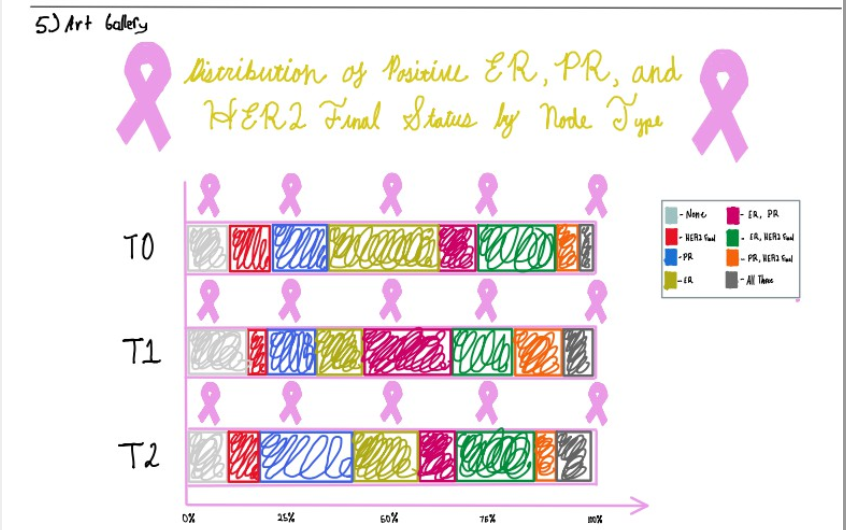 5) Art Gallery
Distribution of Positive ER, PR, and
HER2 Final Status by Node Type
T0
T1
T2
0%
25%
50%
75%
100%
- None
- HER2 Final
- PR
- ER
- ER, PR
- ER, HER2 Final
- PR, HER2 Final
- All Three